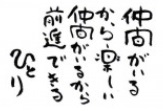 仲間がいる
から楽しい
仲間がゐるから
前進できる
ひとり